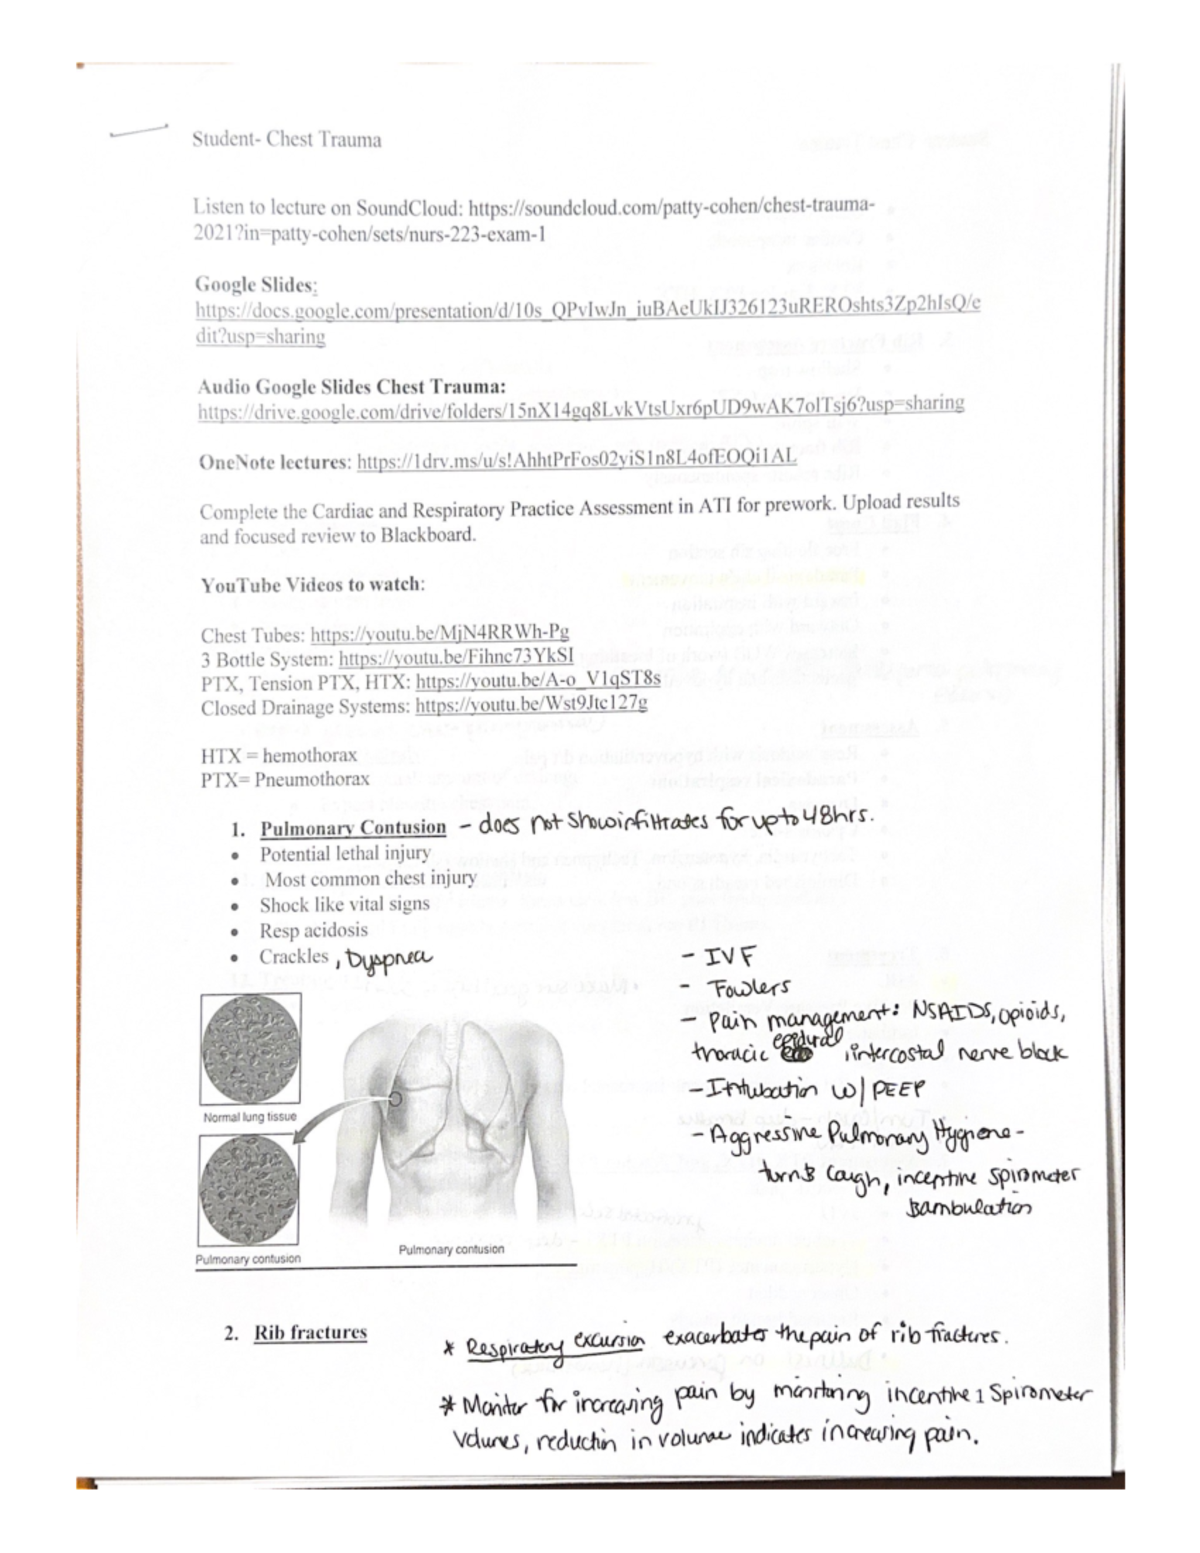 Student- Chest Trauma
Listen to lecture on SoundCloud: https://soundcloud.com/patty-cohen/chest-trauma-
2021?in=patty-cohen/sets/nurs-223-exam-1
Google Slides:
https://docs.google.com/presentation/d/10s_QPvIwJn_iuBAeUkIJ326123uREROshts3Zp2hIsQ/e
dit?usp=sharing
Audio Google Slides Chest Trauma:
https://drive.google.com/drive/folders/15nX14gq8LvkVtsUxr6pUD9wAK7olTsj6?usp=sharing
OneNote lectures: https://1drv.ms/u/s!AhhtPrFos02yiS1n8L4ofEOQi1AL
Complete the Cardiac and Respiratory Practice Assessment in ATI for prework. Upload results
and focused review to Blackboard.
YouTube Videos to watch:
Chest Tubes: https://youtu.be/MjN4RRWh-Pg
3 Bottle System: https://youtu.be/Fihnc73YkSI
PTX, Tension PTX, HTX: https://youtu.be/A-o_V1qST8s
Closed Drainage Systems: https://youtu.be/Wst9Jtc127g
HTX = hemothorax
PTX= Pneumothorax
1. Pulmonary Contusion - does not show infiltrates for up to 48hrs.
• Potential lethal injury
• Most common chest injury
• Shock like vital signs
• Resp acidosis
• Crackles , Dyspnea
- IVF
- Fowlers
- Pain management: NSAIDS, opioids,
thoracic epidural, intercostal nerve block
- Intubation w/ PEEP
- Aggressive Pulmonary Hygiene -
turn & Cough, incentive spirometer
& ambulation
Normal lung tissue
Pulmonary contusion
Pulmonary contusion
2. Rib fractures
* Respiratory excursion exacerbates the pain of rib fractures.
* Monitor for increasing pain by monitoring incentive Spirometer
volumes, reduction in volume indicates increasing pain.